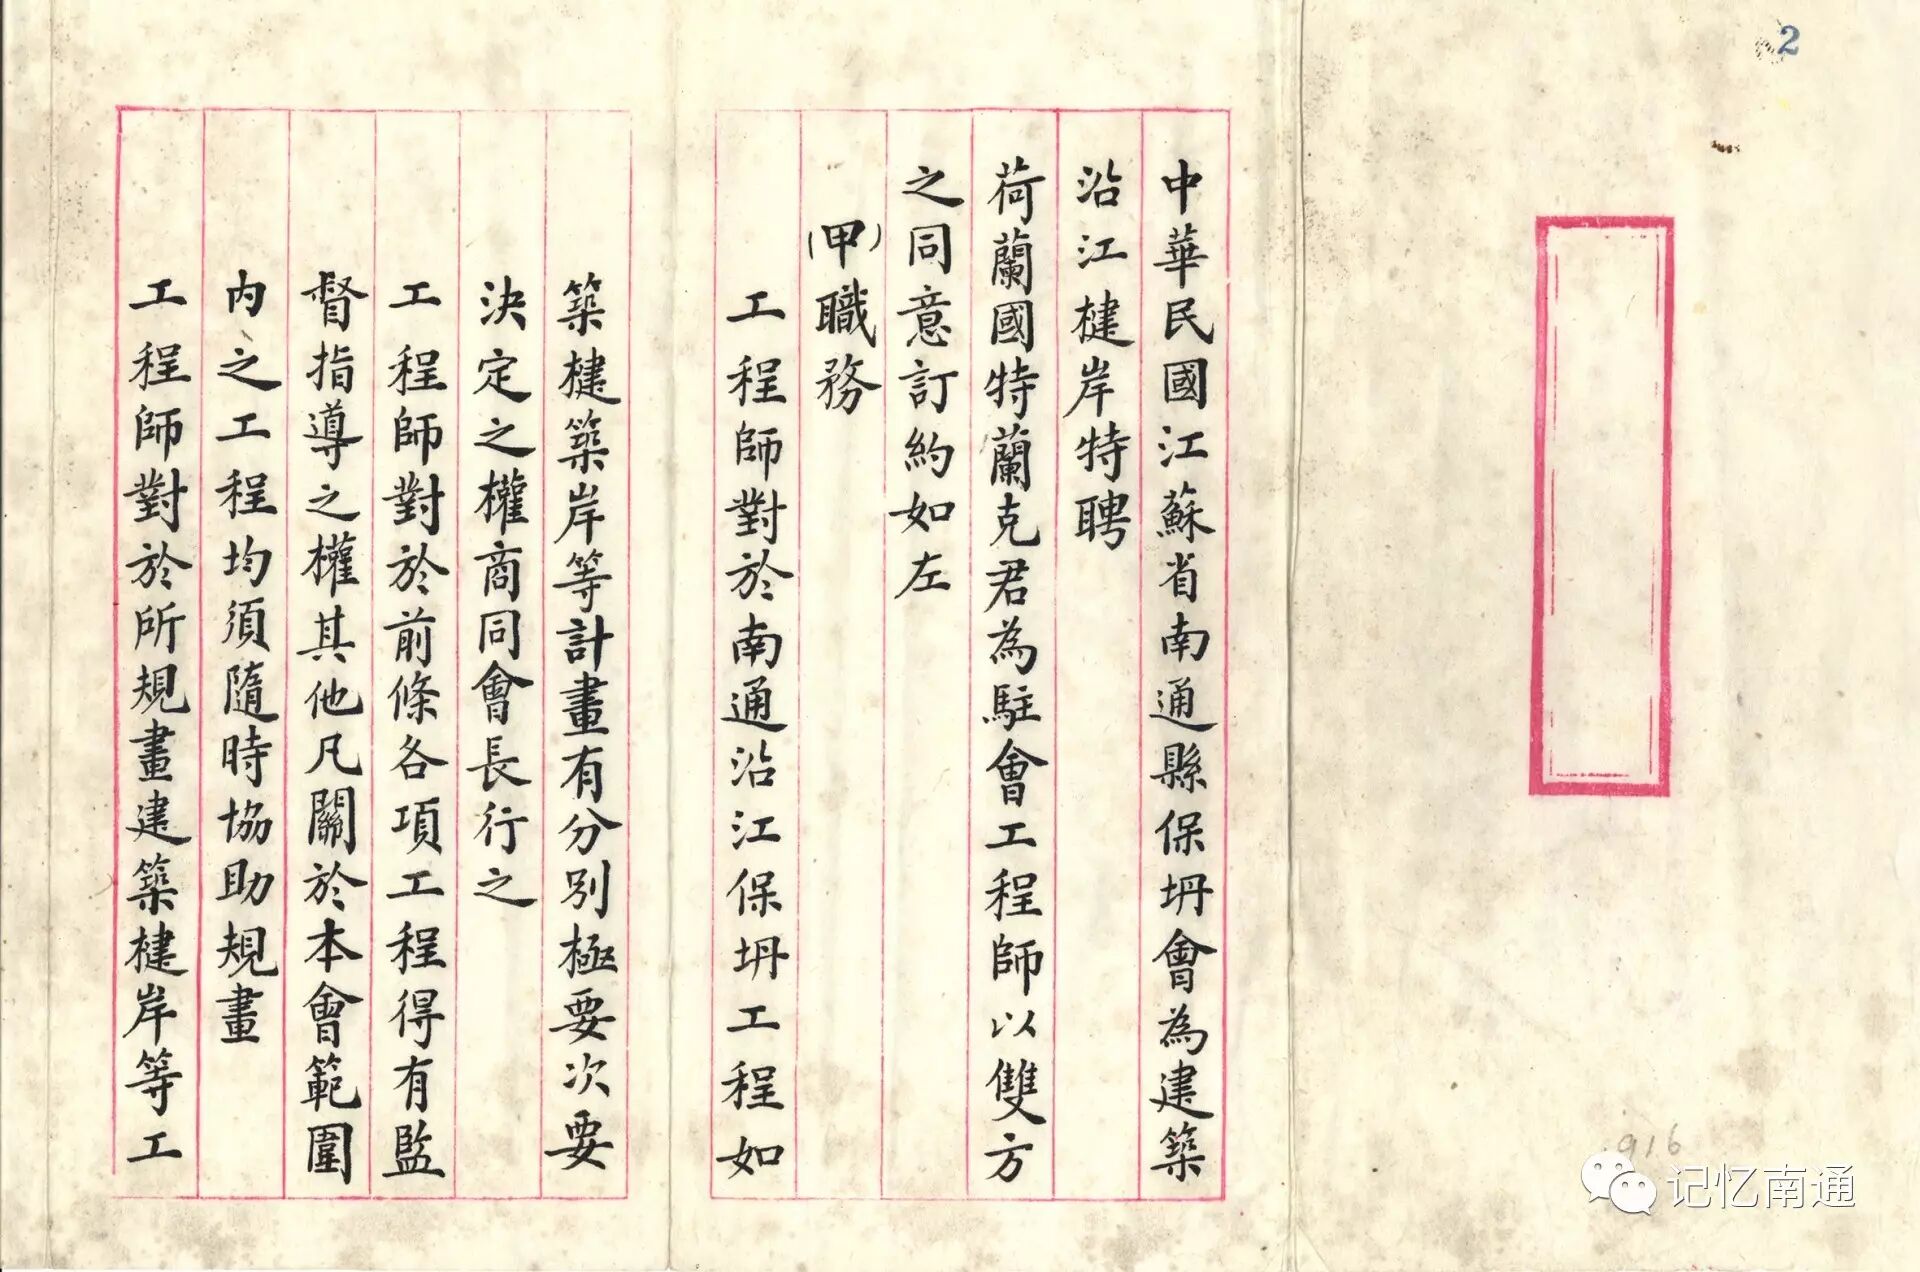 2
中華民國江蘇省南通縣保坍會為建築
沿江楗岸特聘
荷蘭國特蘭克君為駐會工程師以雙方
之同意訂約如左
(甲)職務
工程師對於南通沿江保坍工程如
築楗築岸等計畫有分別極要次要
決定之權商同會長行之
工程師對於前條各項工程得有監
督指導之權其他凡關於本會範圍
內之工程均須隨時協助規畫
工程師對於所規畫建築楗岸等工
916
记忆南通